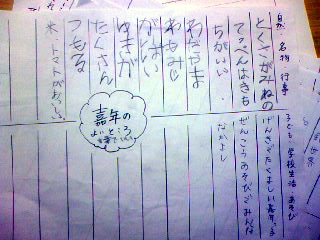 自然 名物 行事
とくさがみねの
てっぺんはきも
ちがいい
もみじ
ゆきが
たくさん
つもる
米、トマトがおいしい
子ども 学校生活 あそび
げんきでたくましい嘉年っ子
ぜんこうあそびでみんな
なかよし
嘉年の
よいところ